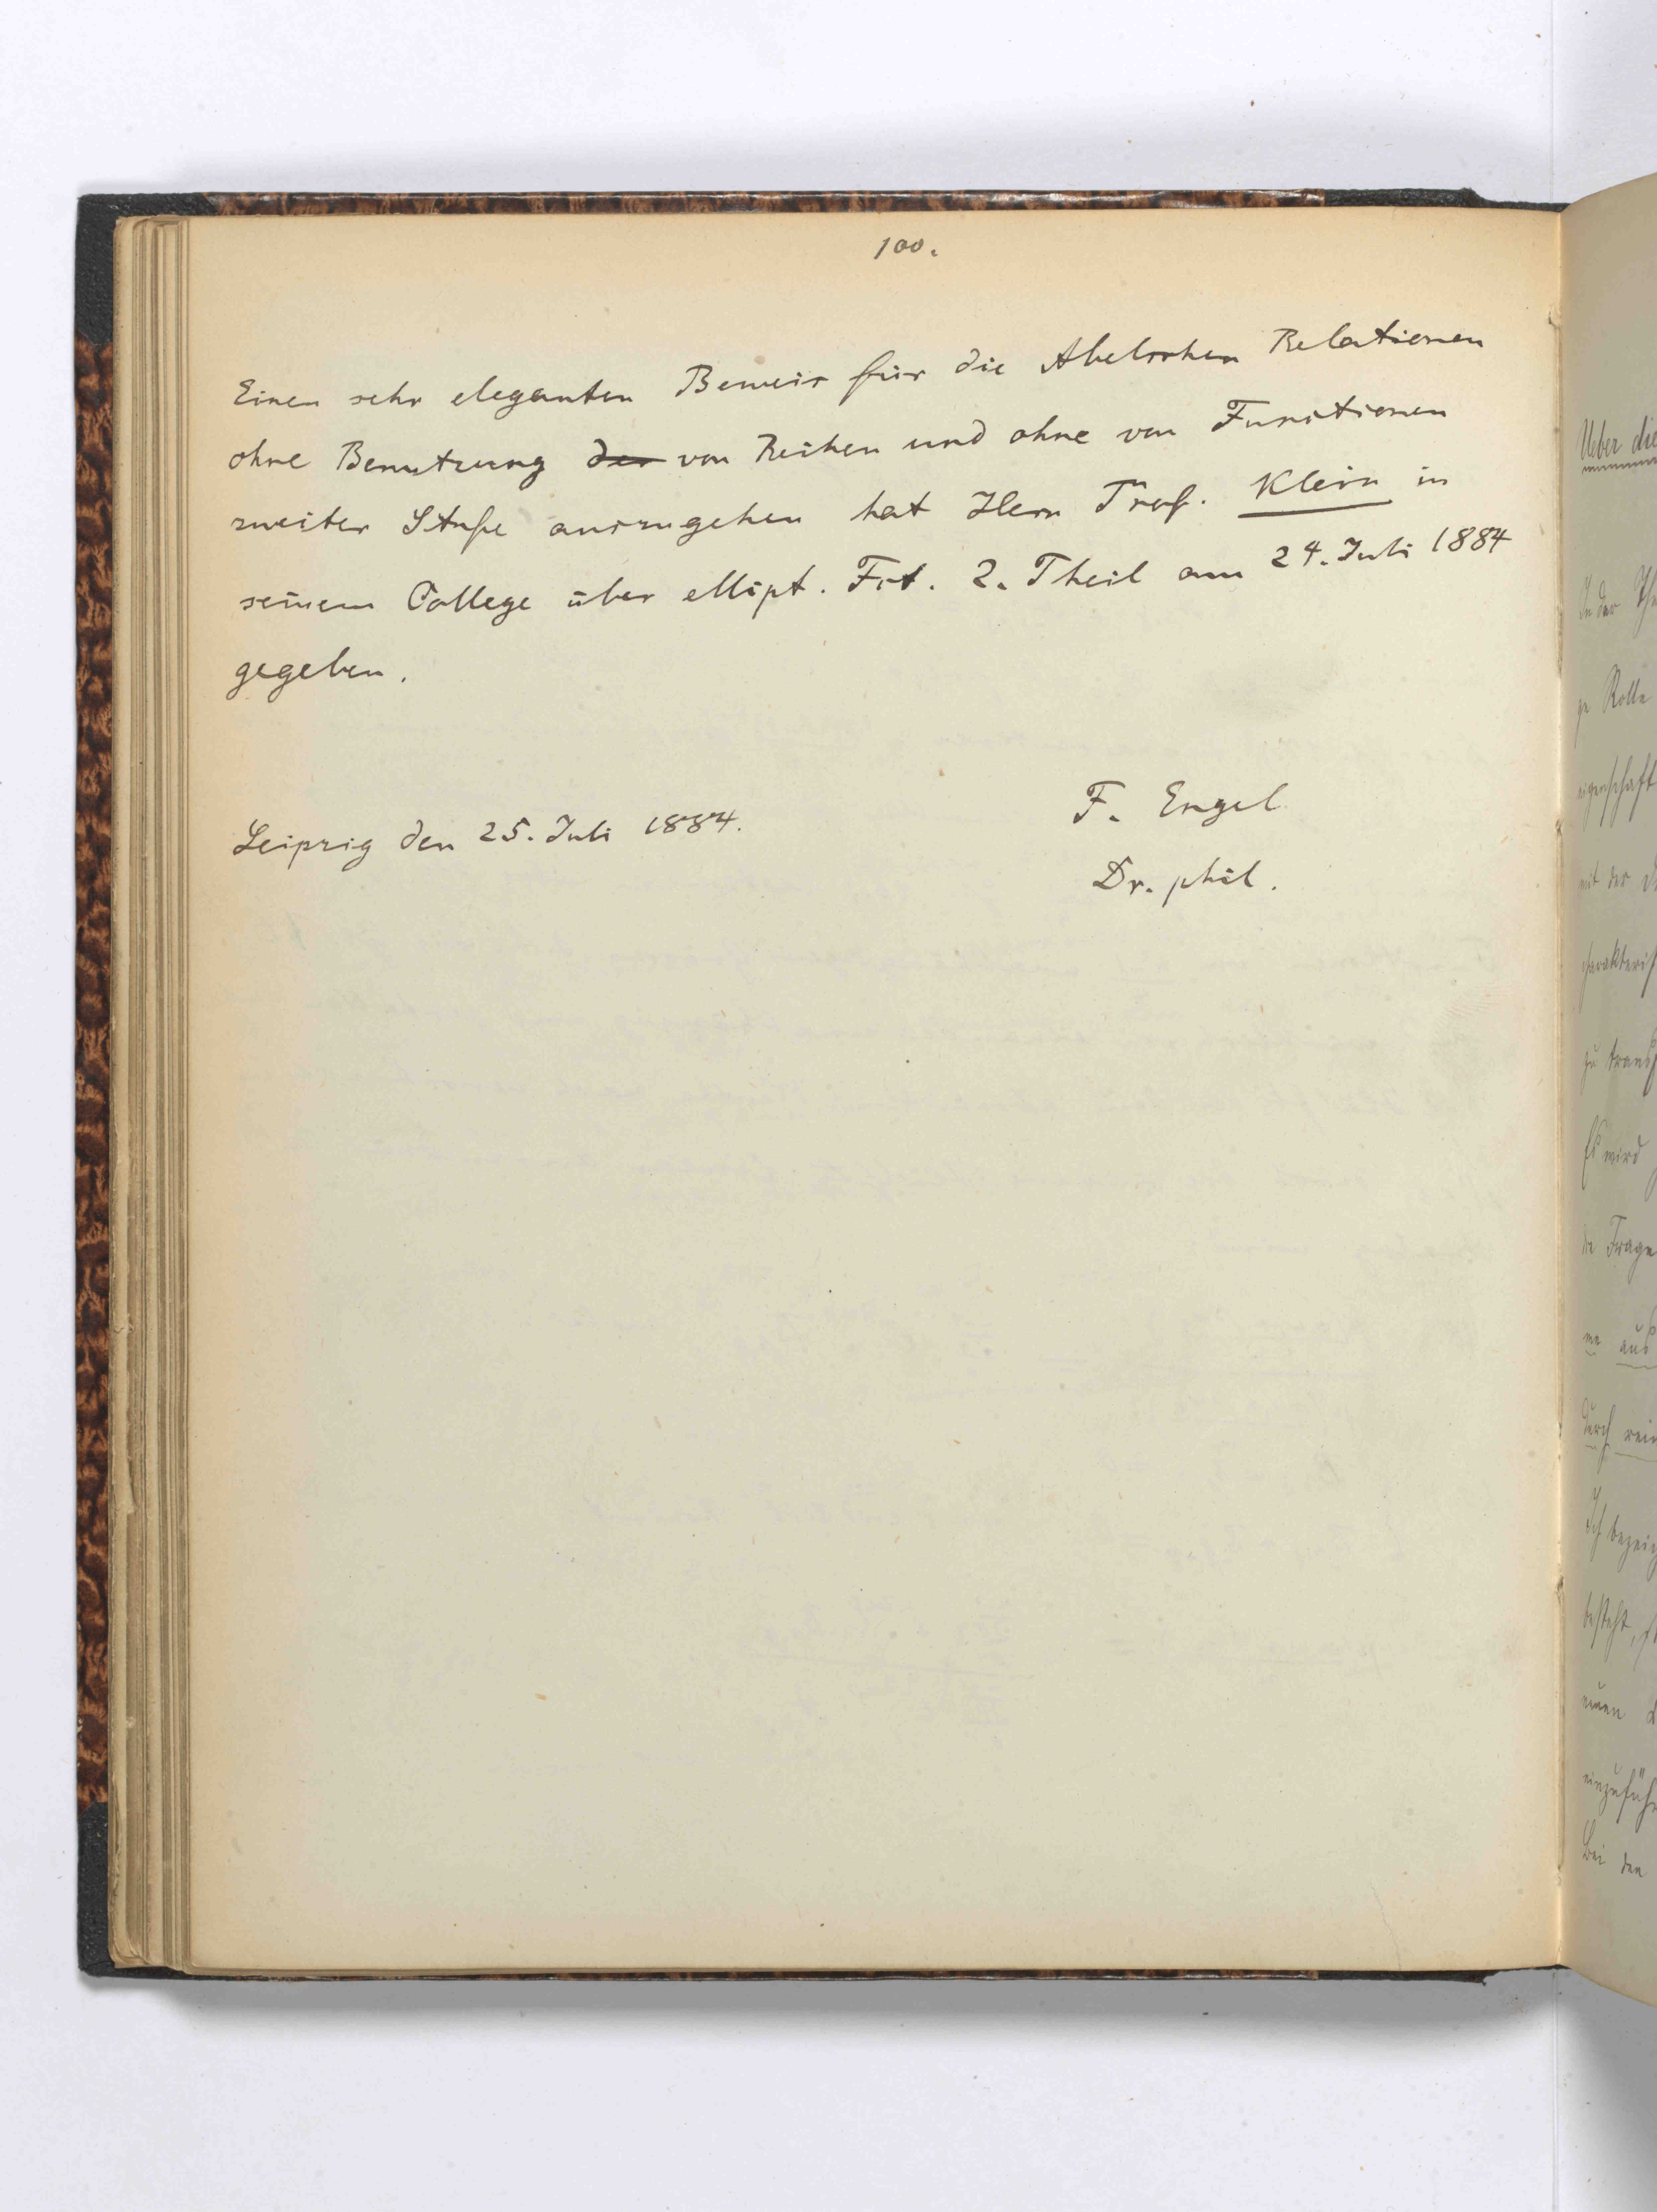 100.
Einen sehr eleganten Beweis für die Abelschen Relationen
ohne Benutzung der von Reihen und ohne von Functionen
zweiter Stufe auszugehen hat Herr Prof. Klein in
seinem College über ellipt. Fct. 2. Theil am 24. Juli 1884
gegeben.
Leipzig den 25. Juli 1884.
F. Engel
Dr. phil.
Ueber die
In der
Rolle
mit der
Es wird
die Frage
aus
durch
Bei den